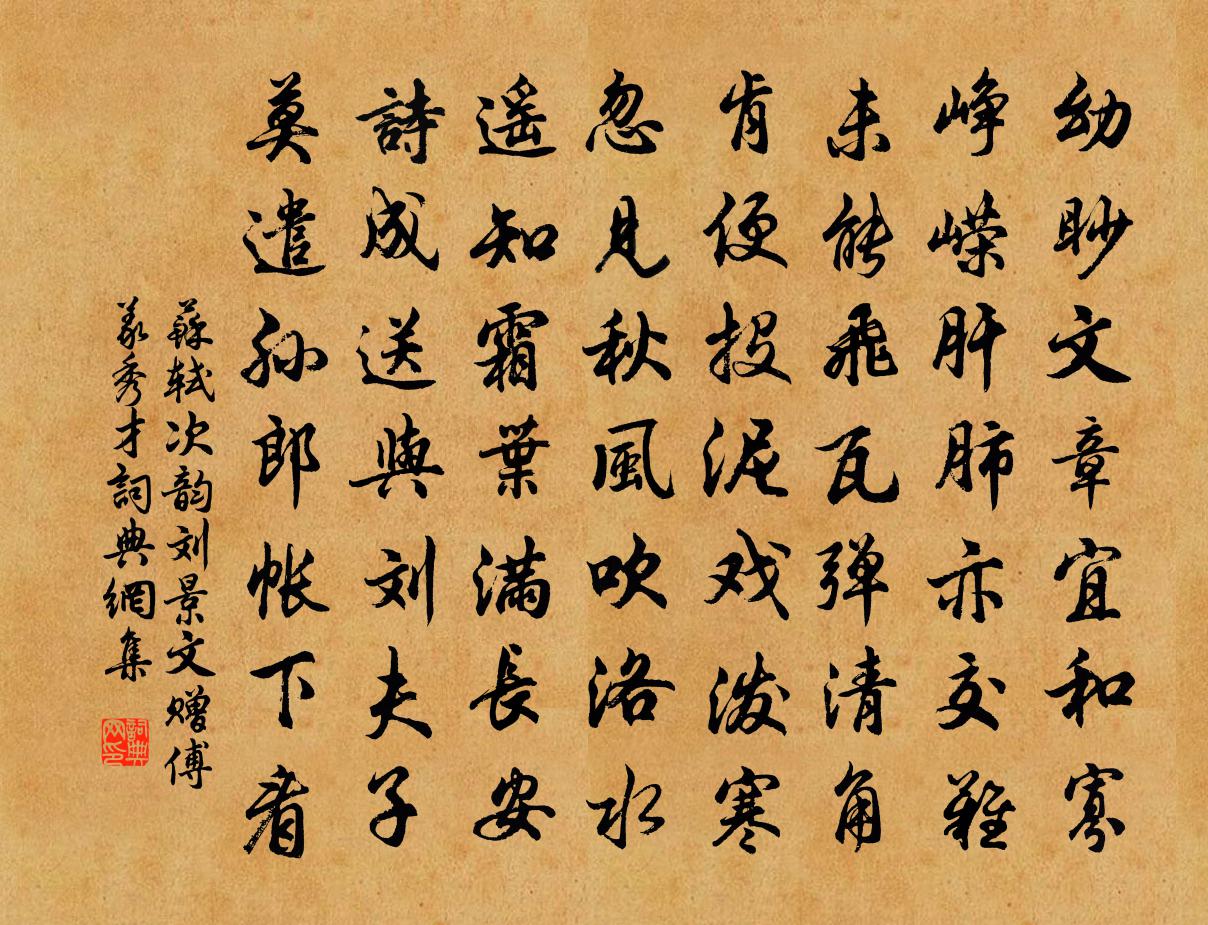 幼眇文章宜和寡
峥嵘肝肺亦交難
未能飛瓦弹清角
肯便投泥戏泼寒
忽見秋風吹洛水
遥知霜葉满長安
詩成送與刘夫子
莫遣孙郎帐下看
蘇轼次韵刘景文赠傅
羲秀才詞典網集
詞典网印